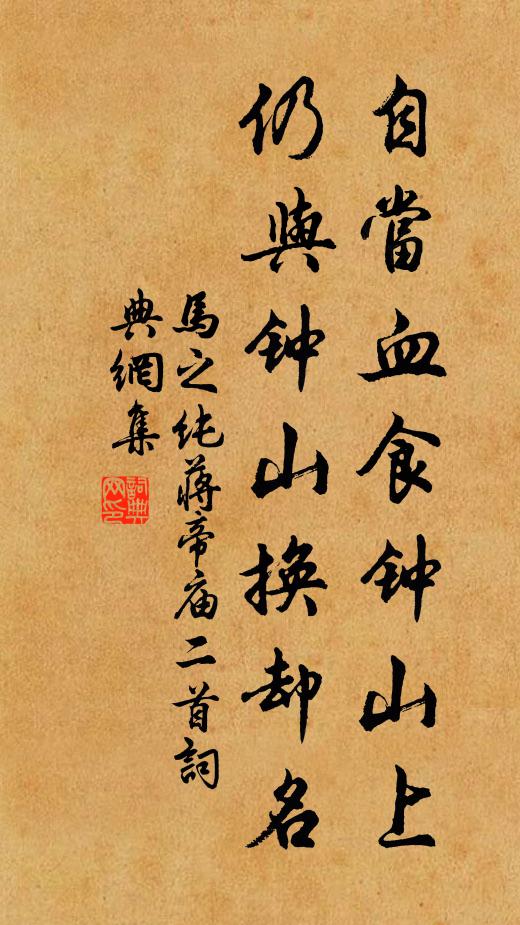 自當血食钟山上
仍與钟山換却名
馬之纯蔣帝庙二首詞
典網集
詞典网印